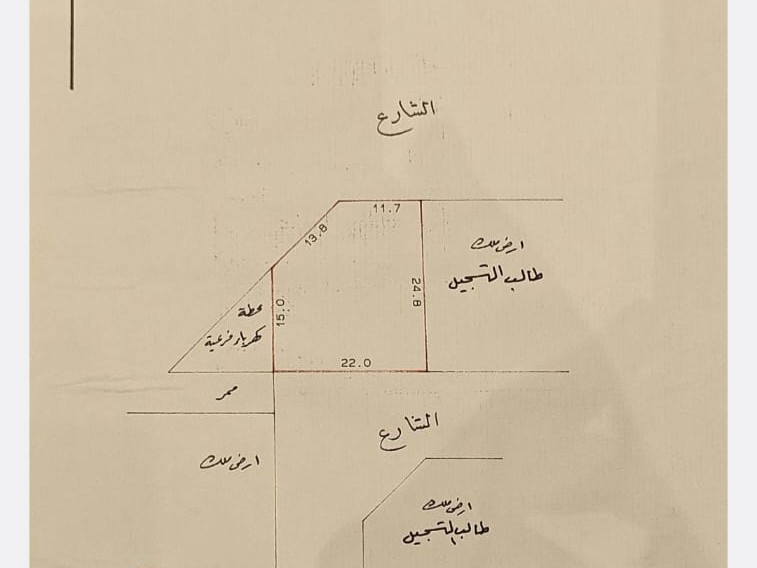 الشارع
11.7
13.8
ارض ملك
طالب التسجيل
24.8
15.0
محطة
كهرباء فرعية
22.0
ممر
الشارع
ارض ملك
ارض ملك
طالب التسجيل